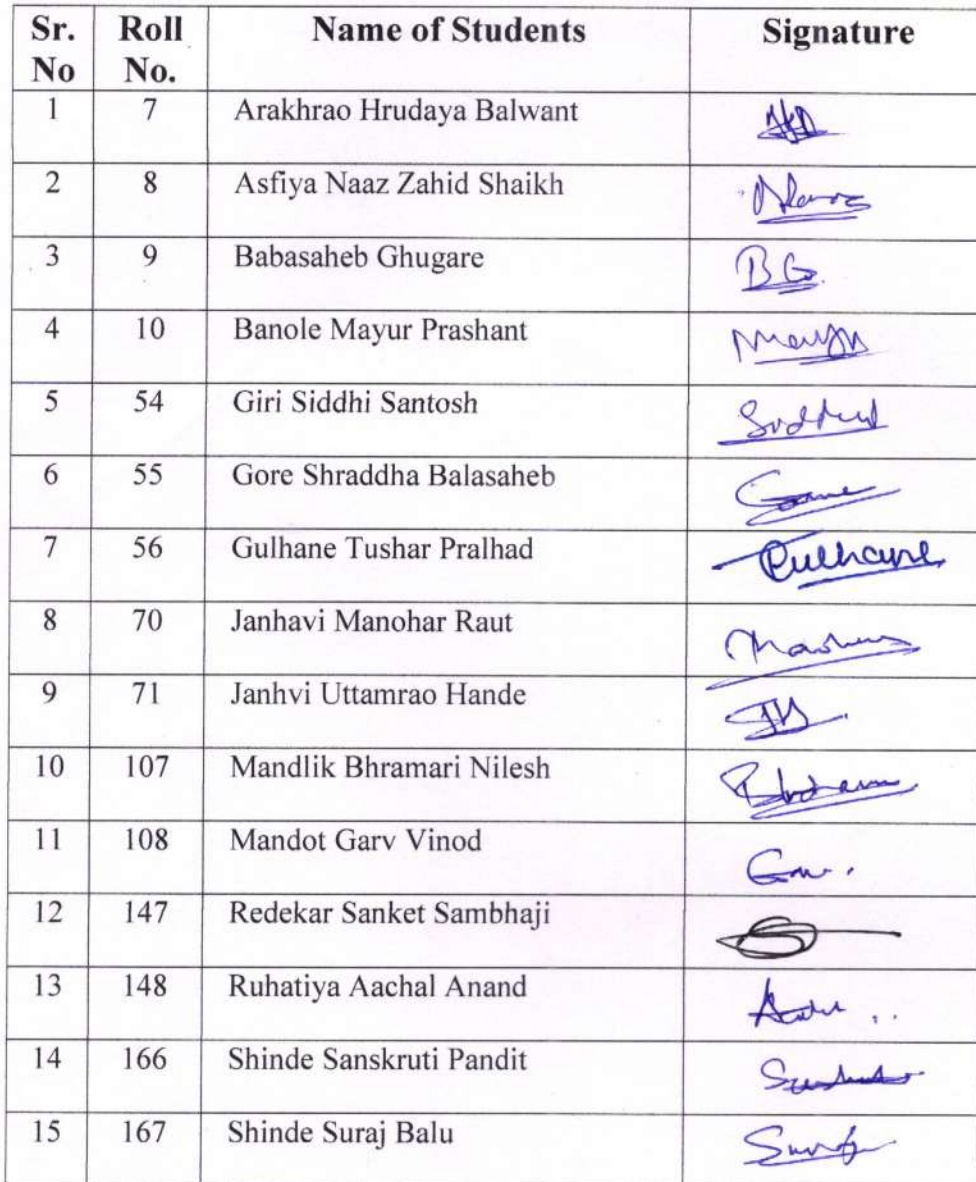 Sr. No Roll No. Name of Students Signature
1 7 Arakhrao Hrudaya Balwant
2 8 Asfiya Naaz Zahid Shaikh
3 9 Babasaheb Ghugare BG
4 10 Banole Mayur Prashant
5 54 Giri Siddhi Santosh
6 55 Gore Shraddha Balasaheb
7 56 Gulhane Tushar Pralhad
8 70 Janhavi Manohar Raut
9 71 Janhvi Uttamrao Hande
10 107 Mandlik Bhramari Nilesh
11 108 Mandot Garv Vinod
12 147 Redekar Sanket Sambhaji
13 148 Ruhatiya Aachal Anand
14 166 Shinde Sanskruti Pandit
15 167 Shinde Suraj Balu